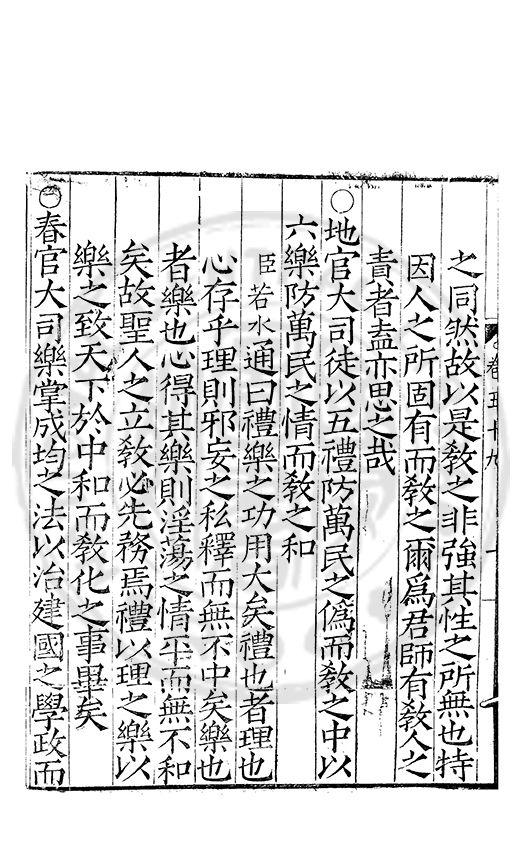 之同然故以是敎之非強其性之所無也特
因人之所固有而敎之爾爲君師有敎人之
責者盍亦思之哉
○地官大司徒以五禮防萬民之僞而敎之中以
六樂防萬民之情而敎之和
臣若水通曰禮樂之功用大矣禮也者理也
心存乎理則邪妄之私釋而無不中矣樂也
者樂也心得其樂則淫蕩之情平而無不和
矣故聖人之立敎必先務焉禮以理之樂以
樂之致天下於中和而敎化之事畢矣
○春官大司樂掌成均之法以治建國之學政而
卷五十九